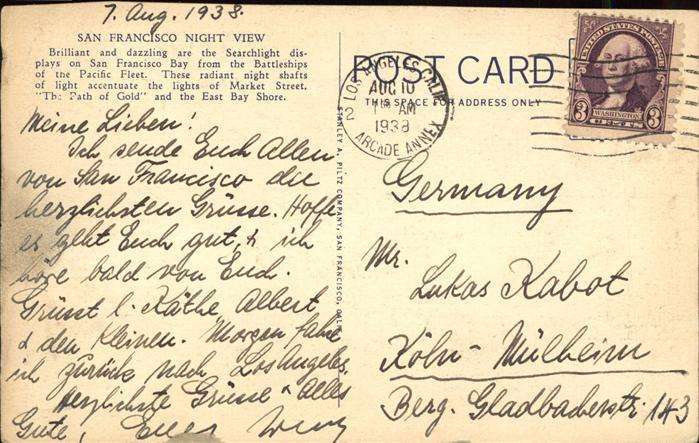 7. Aug. 1938.
SAN FRANCISCO NIGHT VIEW
Brilliant and dazzling are the Searchlight dis-
plays on San Francisco Bay from the Battleships
of the Pacific Fleet. These radiant night shafts
of light accentuate the lights of Market Street,
"The Path of Gold" and the East Bay Shore.
Meine Lieben!
Ich sende Euch Allen
von San Francisco die
herzlichsten Grüsse. Hoffe
es geht Euch gut, & ich
höre bald von Euch.
Grüsst l. Käthe, Albert
& den Kleinen. Morgen fahre
ich zurück nach Los Angeles.
Herzlichste Grüsse & Alles
Gute, Euer
STANLEY A. PILTZ COMPANY, SAN FRANCISCO, CALIF.
POST CARD
THIS SPACE FOR ADDRESS ONLY
LOS ANGELES, CALIF.
AUG 10
AM
1938
2
ARCADE ANNEX
UNITED STATES POSTAGE
WASHINGTON
3 CENTS 3
Germany
Mr.
Lukas Kabot
Köln-Mülheim
Berg. Gladbacherstr. 143